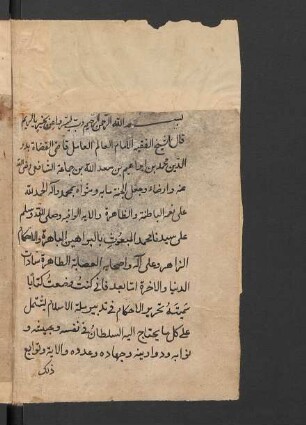 بسم الله الرحمن الرحيم رب يسر واعن بخير يا كريم
قال الشيخ الفقيه الامام العالم العامل قاضي القضاة بدر
الدين محمد بن ابراهيم بن سعد الله بن جماعة الشافعي رضي الله
عنه وارضاه وجعل الجنة مآبه ومثواه بمحمد وآله الحمد لله
على نعمه الباطنة والظاهرة والآيه الوافره وصلى الله وسلم
على سيدنا محمد المبعوث بالبراهين الباهرة والاحكام
الزاهره وعلى آله واصحابه العصابة الطاهرة سادات
الدنيا والآخرة اما بعد فاني كنت وضعت كتابا
سميته تحرير الاحكام في تدبير ملة الاسلام يشتمل
على كل ما يحتاج اليه السلطان في نفسه وجيشه و
نوابه ودواوينه وجهاده وعدوه والاية وتوابع
ذلك